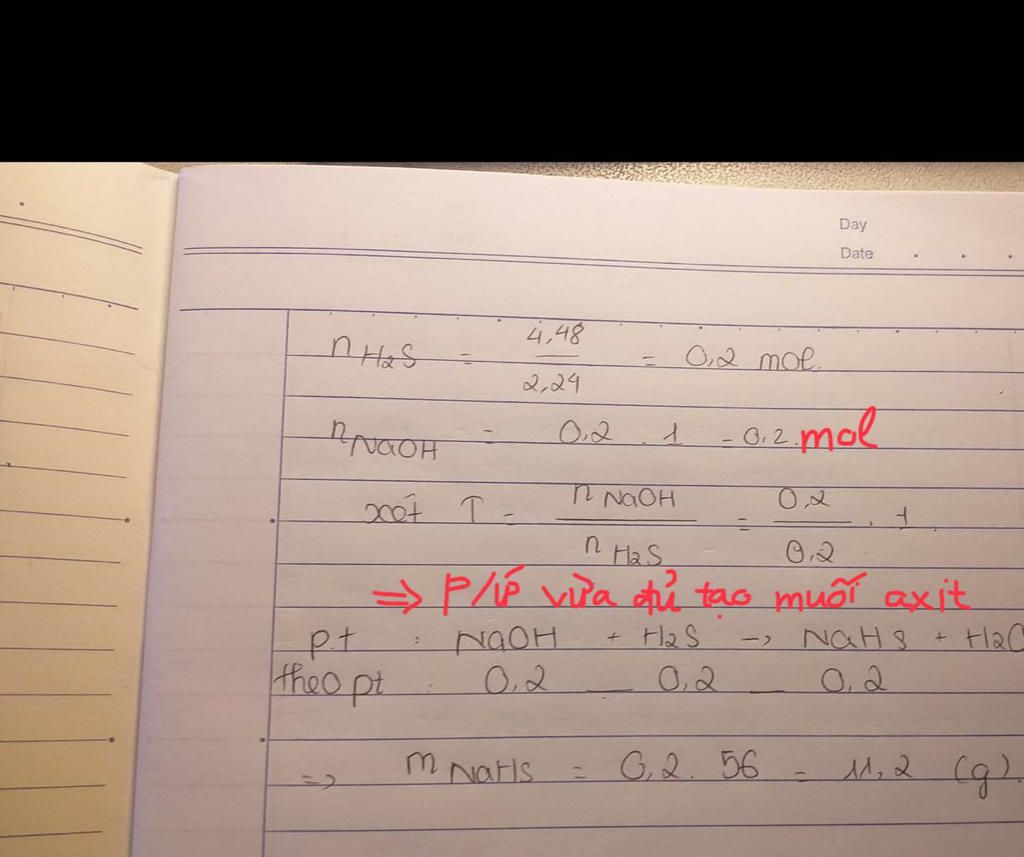 Day
Date
nH2S = 4,48 / 2,24 = 0,2 mol.
nNaOH = 0,2 . 1 = 0,2. mol
xét T = nNaOH / nH2S = 0,2 / 0,2 . 1
=> P/Ứ vừa đủ tạo muối axit
p.t : NaOH + H2S -> NaHS + H2O
theo pt : 0,2 — 0,2 — 0,2
=> mNaHS = 0,2. 56 = 11,2 (g).